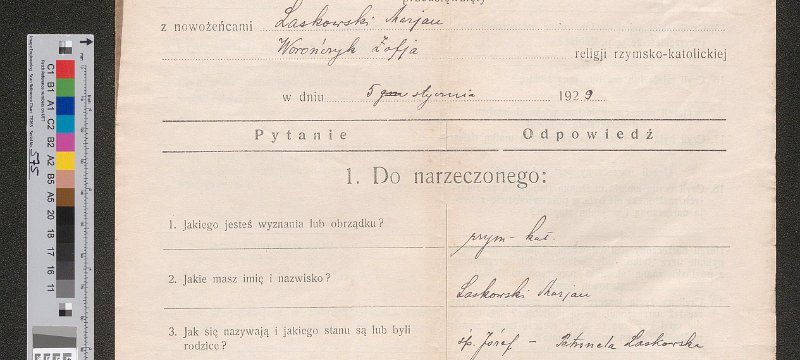 z nowożeńcami Laskowski Marjan
Worończyk Zofja religji rzymsko-katolickiej
w dniu 5 stycznia 1929
Pytanie Odpowiedź
1. Do narzeczonego:
1. Jakiego jesteś wyznania lub obrządku?
rzym-kat.
2. Jakie masz imię i nazwisko?
Laskowski Marjan
3. Jak się nazywają i jakiego stanu są lub byli
rodzice?
śp. Józef - Petronela Laskowska
575
C1 B1 A1 C2 B2 A2 B5 A5 20 18 17 16 11